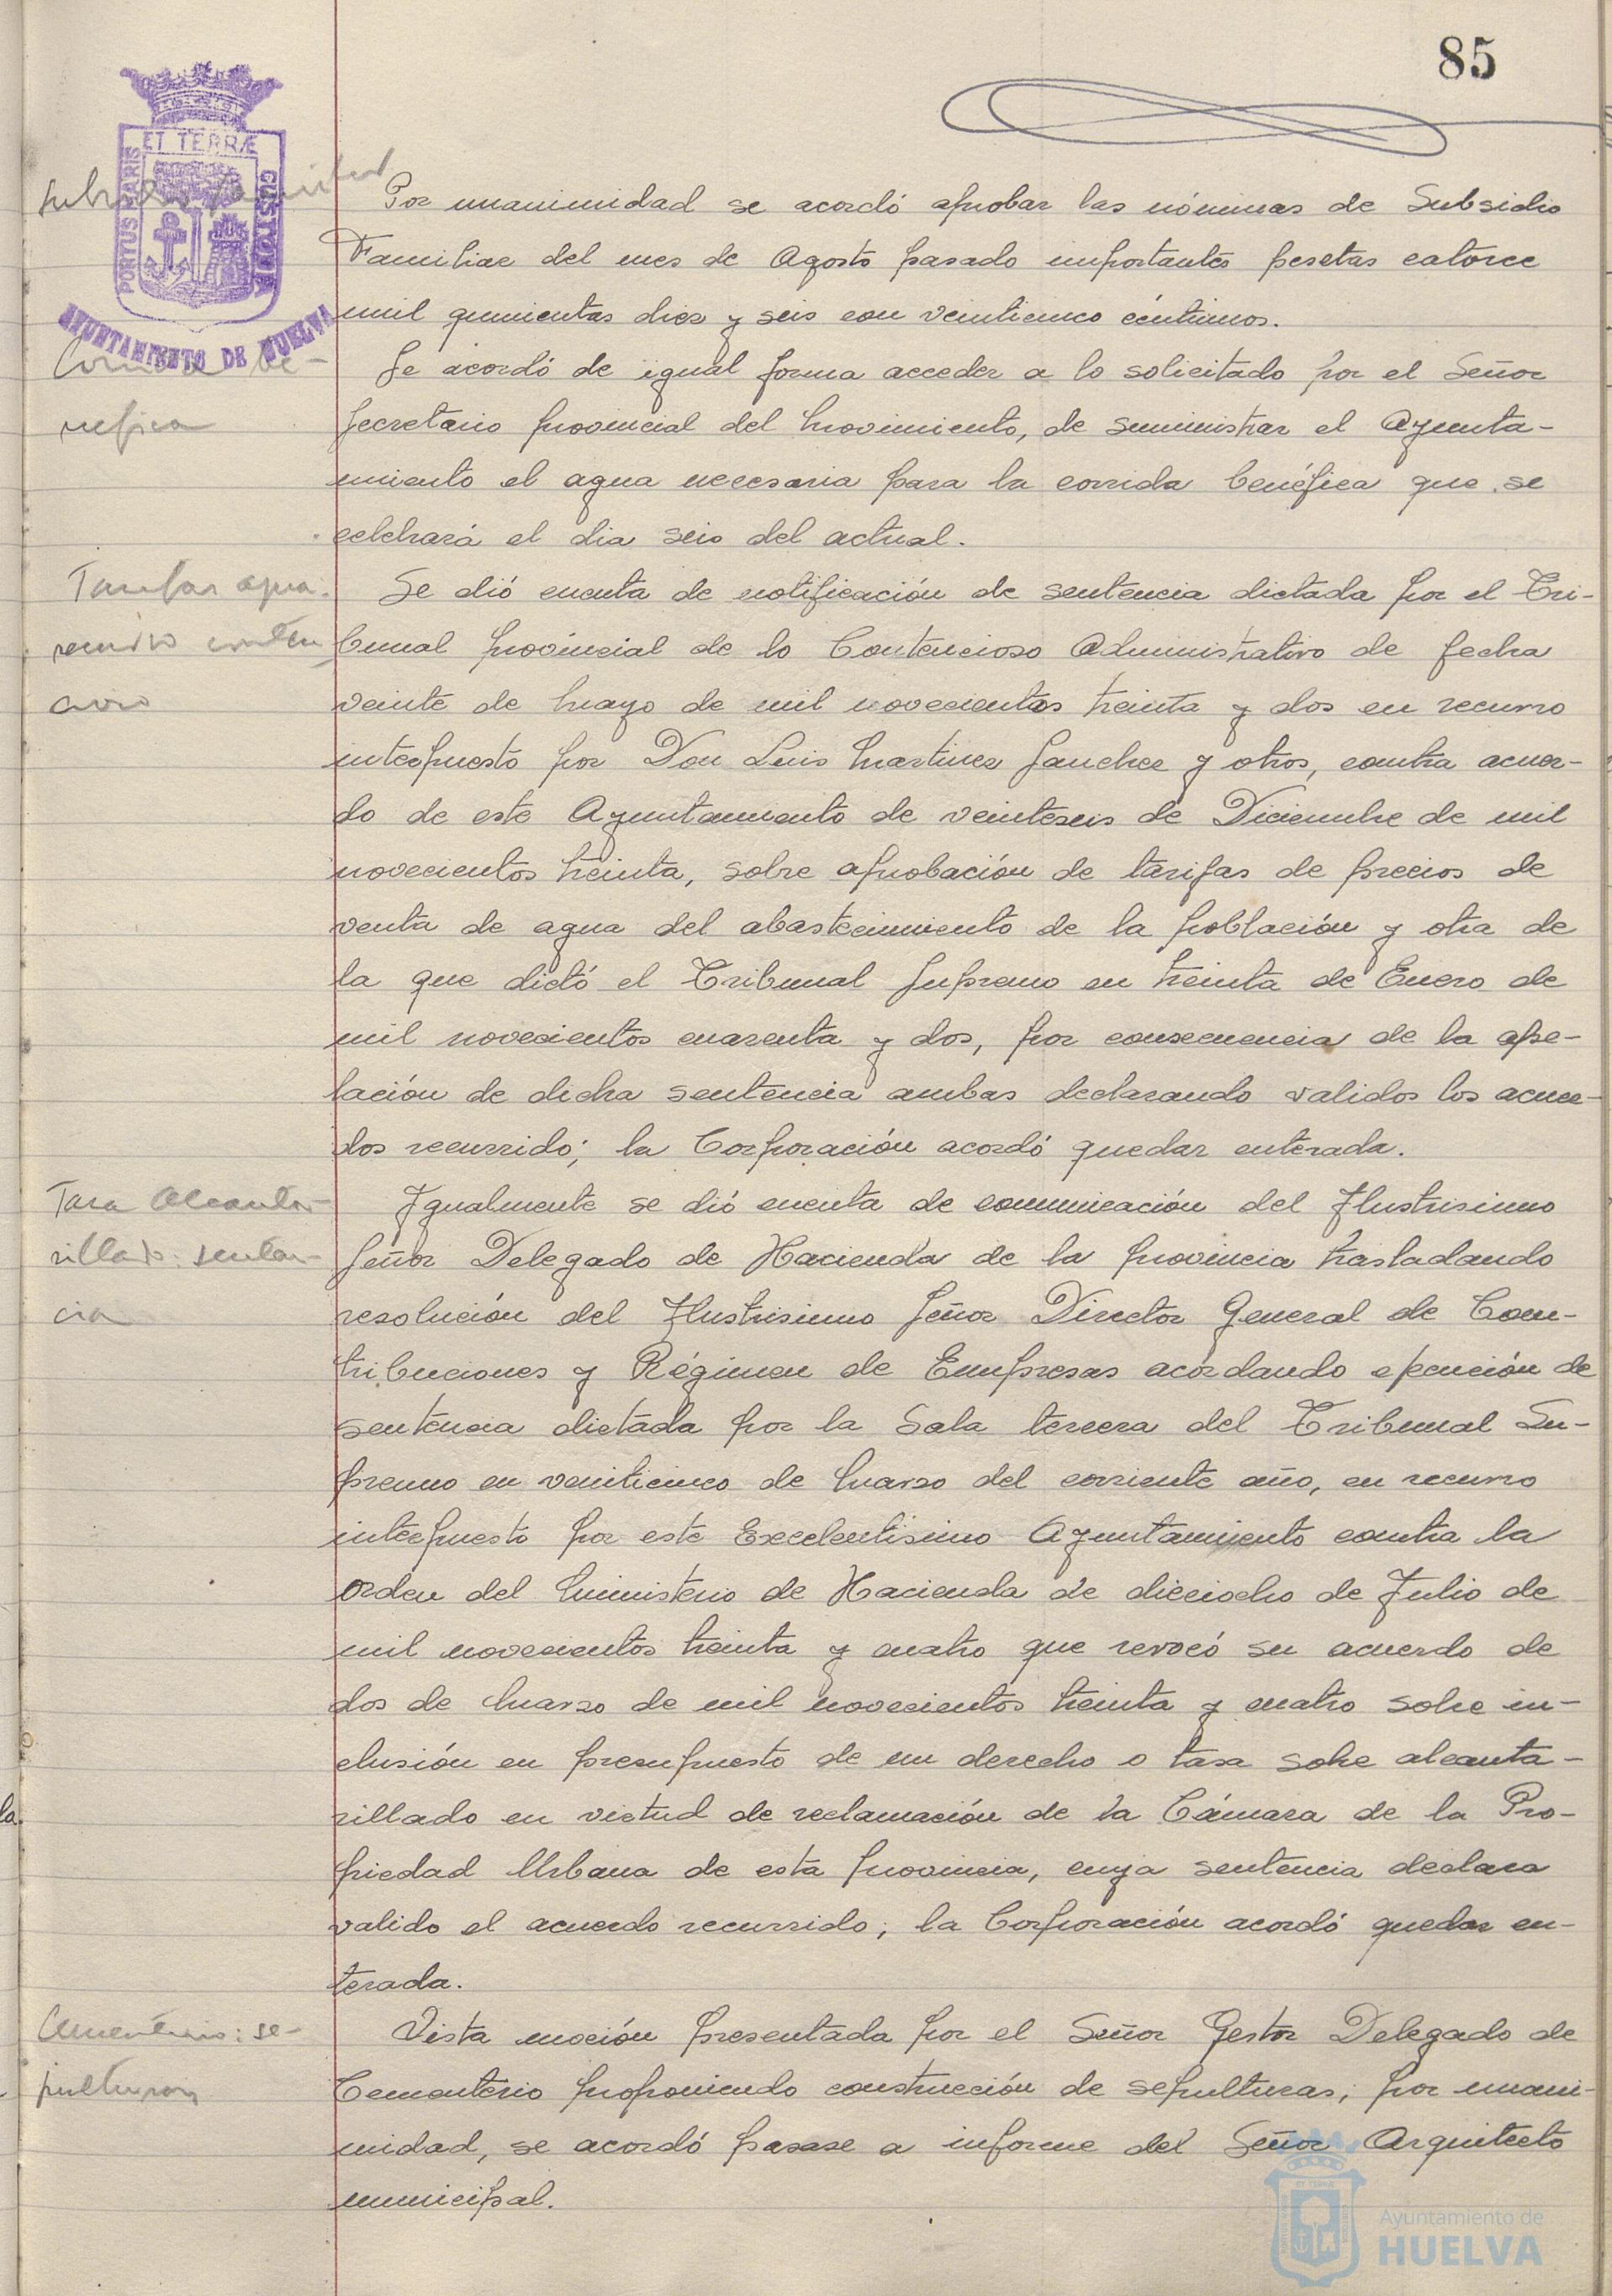 85
ET TERRÆ
PORTUS MARIS
CUSTODIA
AYUNTAMIENTO DE HUELVA
Subsidio familiar
Por unanimidad se acordó aprobar las nóminas de Subsidio
Familiar del mes de Agosto pasado importantes pesetas catorce
mil quinientas diez y seis con veinticinco céntimos.
Corrida be-
néfica
Se acordó de igual forma acceder a lo solicitado por el Señor
Secretario provincial del Movimiento, de suministrar el Ayunta-
miento el agua necesaria para la corrida benéfica que se
celebrará el dia seis del actual.
Tarifas agua.
recurso conten
cioso
Se dió cuenta de notificación de sentencia dictada por el Tri-
bunal provincial de lo Contencioso Administrativo de fecha
veinte de Mayo de mil novecientos treinta y dos en recurso
interpuesto por Don Luis Martinez Sanchez y otros, contra acuer-
do de este Ayuntamiento de veinteseis de Diciembre de mil
novecientos treinta, sobre aprobación de tarifas de precios de
venta de agua del abastecimiento de la población y otra de
la que dictó el Tribunal Supremo en treinta de Enero de
mil novecientos cuarenta y dos, por consecuencia de la ape-
lación de dicha sentencia ambas declarando validos los acuer-
dos recurrido; la Corporación acordó quedar enterada.
Tasa Alcanta-
rillado: senten-
cia
Igualmente se dió cuenta de comunicación del Ilustrisimo
Señor Delegado de Hacienda de la provincia trasladando
resolución del Ilustrisimo Señor Director General de Con-
tribuciones y Régimen de Empresas acordando ejecución de
sentencia dictada por la Sala tercera del Tribunal Su-
premo en veinticinco de Marzo del corriente año, en recurso
interpuesto por este Excelentisimo Ayuntamiento contra la
orden del Ministerio de Hacienda de dieciocho de Julio de
mil novecientos treinta y cuatro que revocó su acuerdo de
dos de Marzo de mil novecientos treinta y cuatro sobre in-
clusión en presupuesto de un derecho o tasa sobre alcanta-
rillado en virtud de reclamación de la Cámara de la Pro-
piedad Urbana de esta provincia, cuya sentencia declara
valido el acuerdo recurrido; la Corporación acordó quedar en-
terada.
Cementerio: se-
pulturas
Vista moción presentada por el Señor Gestor Delegado de
Cementerio proponiendo construcción de sepulturas, por unani-
midad, se acordó pasase a informe del Señor Arquitecto
municipal.
la
Ayuntamiento de
HUELVA